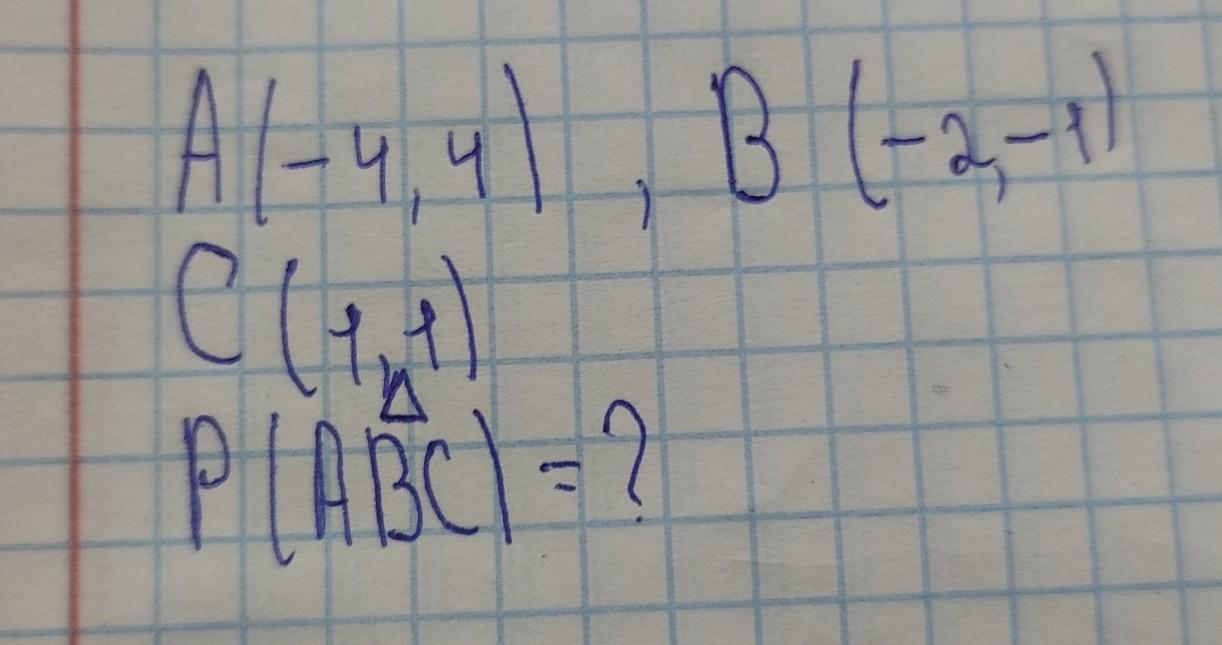 A(-4,4), B(-2,-1)
C(1,1)
Δ
P(ABC)=?